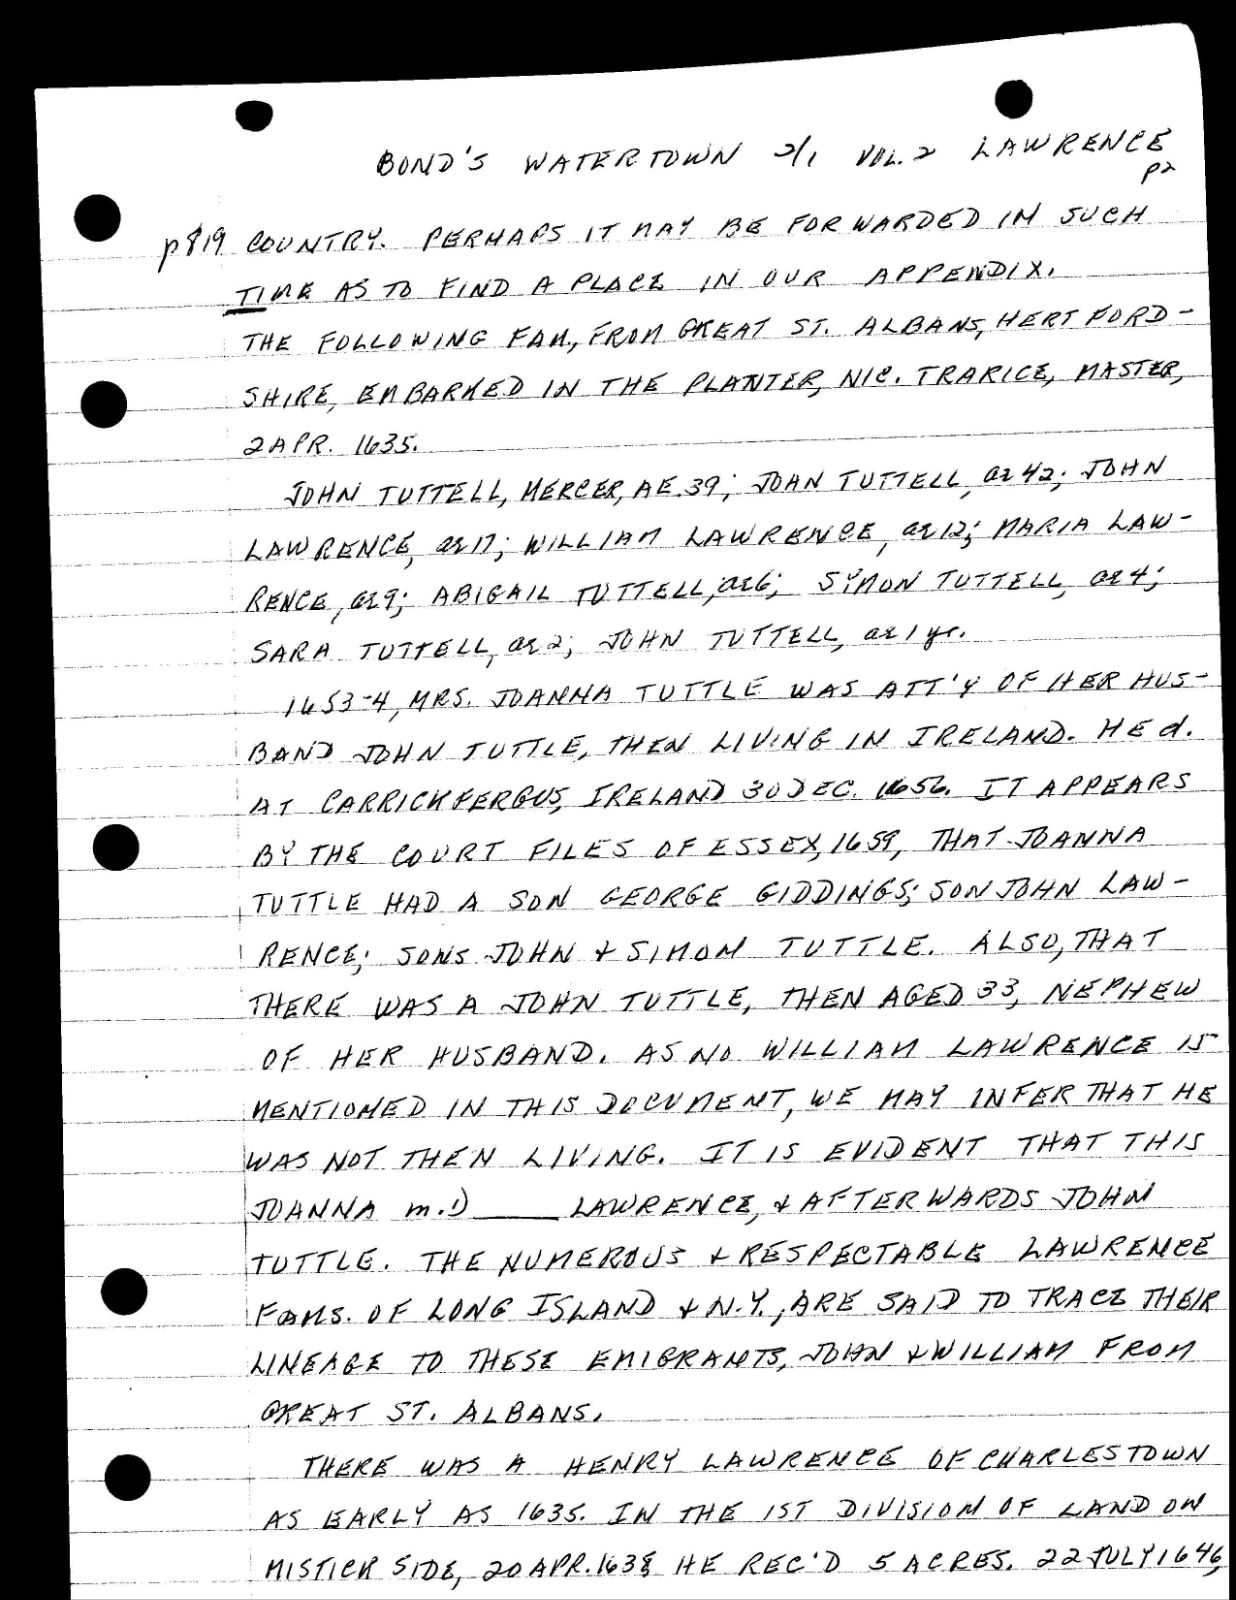 BOND'S WATERTOWN 2/1 VOL. 2 LAWRENCE
p2
p819 COUNTRY. PERHAPS IT MAY BE FORWARDED IN SUCH
TIME AS TO FIND A PLACE IN OUR APPENDIX.
THE FOLLOWING FAM., FROM GREAT ST. ALBANS, HERTFORD-
SHIRE, EMBARKED IN THE PLANTER, NIC. TRARICE, MASTER,
2 APR. 1635.
JOHN TUTTELL, MERCER, AE. 39; JOAN TUTTELL, ae 42; JOHN
LAWRENCE, ae 17; WILLIAM LAWRENCE, ae 12; MARIA LAW-
RENCE, ae 9; ABIGAIL TUTTELL, ae 6; SYMON TUTTELL, ae 4;
SARA TUTTELL, ae 2; JOHN TUTTELL, ae 1 yr.
1653-4, MRS. JOANNA TUTTLE WAS ATT'Y OF HER HUS-
BAND JOHN TUTTLE, THEN LIVING IN IRELAND. HE d.
AT CARRICKFERGUS, IRELAND 30 DEC. 1656. IT APPEARS
BY THE COURT FILES OF ESSEX, 1659, THAT JOANNA
TUTTLE HAD A SON GEORGE GIDDINGS; SON JOHN LAW-
RENCE; SONS JOHN & SIMON TUTTLE. ALSO, THAT
THERE WAS A JOHN TUTTLE, THEN AGED 33, NEPHEW
OF HER HUSBAND. AS NO WILLIAM LAWRENCE IS
MENTIONED IN THIS DOCUMENT, WE MAY INFER THAT HE
WAS NOT THEN LIVING. IT IS EVIDENT THAT THIS
JOANNA m. 1) _____ LAWRENCE, & AFTERWARDS JOHN
TUTTLE. THE NUMEROUS & RESPECTABLE LAWRENCE
FAMS. OF LONG ISLAND & N.Y., ARE SAID TO TRACE THEIR
LINEAGE TO THESE EMIGRANTS, JOHN & WILLIAM FROM
GREAT ST. ALBANS.
THERE WAS A HENRY LAWRENCE OF CHARLESTOWN
AS EARLY AS 1635. IN THE 1ST DIVISION OF LAND ON
MISTICK SIDE, 20 APR. 1638 HE REC'D 5 ACRES. 22 JULY 1646,